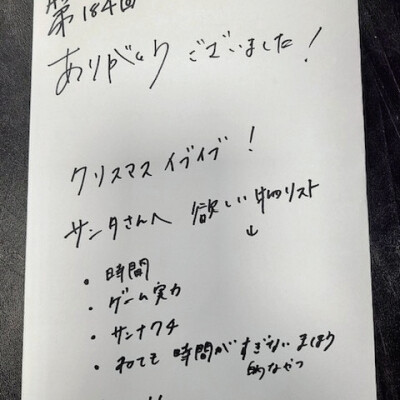 第184回
ありがとうございました!
クリスマス イブイブ!
サンタさんへ 欲しい物リスト
↓
・時間
・ゲーム実力
・サンナウチ
・ねても 時間が すぎない まほう
的なやつ